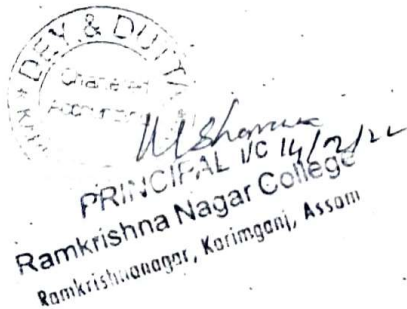 DEY & DUTTA
Chartered
Accountants
PRINCIPAL I/C 14/02/22
Ramkrishna Nagar College
Ramkrishnanagar, Karimganj, Assam